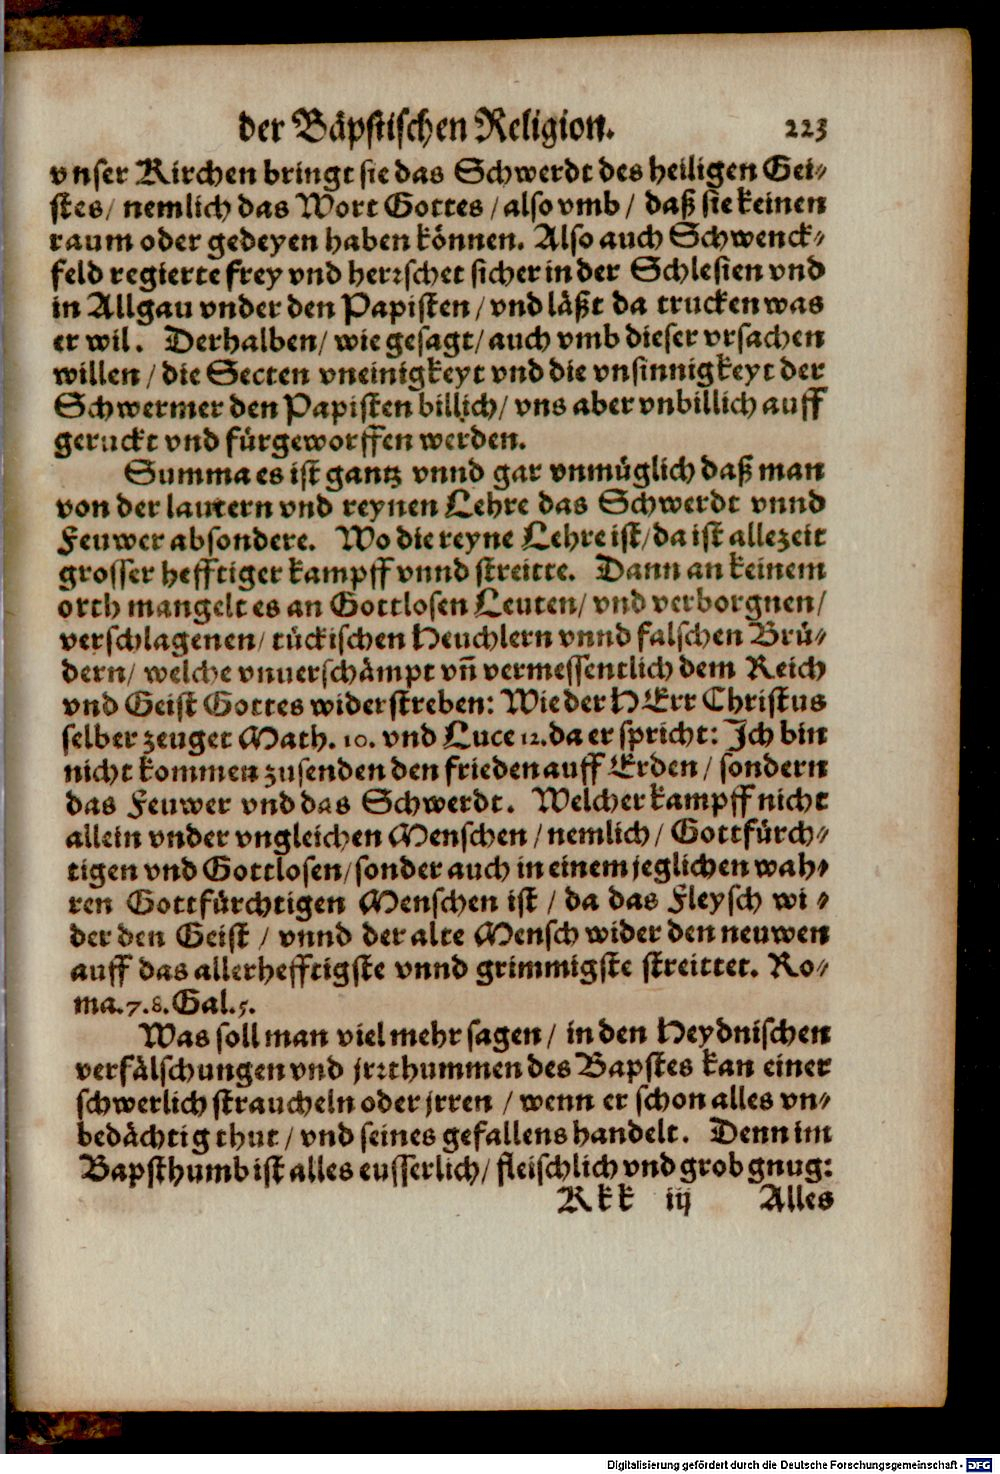 der Bäpstischen Religion. 223
vnser Kirchen bringt sie das Schwerdt des heiligen Gei-
stes/ nemlich das Wort Gottes/ also vmb/ daß sie keinen
raum oder gedeyen haben können. Also auch Schwenck-
feld regierte frey vnd herrschet sicher in der Schlesien vnd
in Allgau vnder den Papisten/ vnd läßt da trucken was
er wil. Derhalben/ wie gesagt/ auch vmb dieser vrsachen
willen/ die Secten vneinigkeyt vnd die vnsinnigkeyt der
Schwermer den Papisten billich/ vns aber vnbillich auff
geruckt vnd fürgeworffen werden.
Summa es ist gantz vnnd gar vnmüglich daß man
von der lautern vnd reynen Lehre das Schwerdt vnnd
Feuwer absondere. Wo die reyne Lehre ist/ da ist allezeit
grosser hefftiger kampff vnnd streitte. Dann an keinem
orth mangelt es an Gottlosen Leuten/ vnd verborgnen/
verschlagenen/ tückischen Heuchlern vnnd falschen Brü-
dern/ welche vnuerschämpt vñ vermessentlich dem Reich
vnd Geist Gottes widerstreben: Wie der HErr Christus
selber zeuget Math. 10. vnd Luce 12. da er spricht: Ich bin
nicht kommen zusenden den frieden auff Erden/ sondern
das Feuwer vnd das Schwerdt. Welcher kampff nicht
allein vnder vngleichen Menschen/ nemlich/ Gottfürch-
tigen vnd Gottlosen/ sonder auch in einem jeglichen wah-
ren Gottfürchtigen Menschen ist/ da das Fleysch wi-
der den Geist/ vnnd der alte Mensch wider den neuwen
auff das allerhefftigste vnnd grimmigste streittet. Ro-
ma. 7. 8. Gal. 5.
Was soll man viel mehr sagen/ in den Heydnischen
verfälschungen vnd jrrthummen des Bapstes kan einer
schwerlich straucheln oder jrren/ wenn er schon alles vn-
bedächtig thut/ vnd seines gefallens handelt. Denn im
Bapsthumb ist alles eusserlich/ fleischlich vnd grob gnug:
Kkk iij Alles
Digitalisierung gefördert durch die Deutsche Forschungsgemeinschaft - DFG